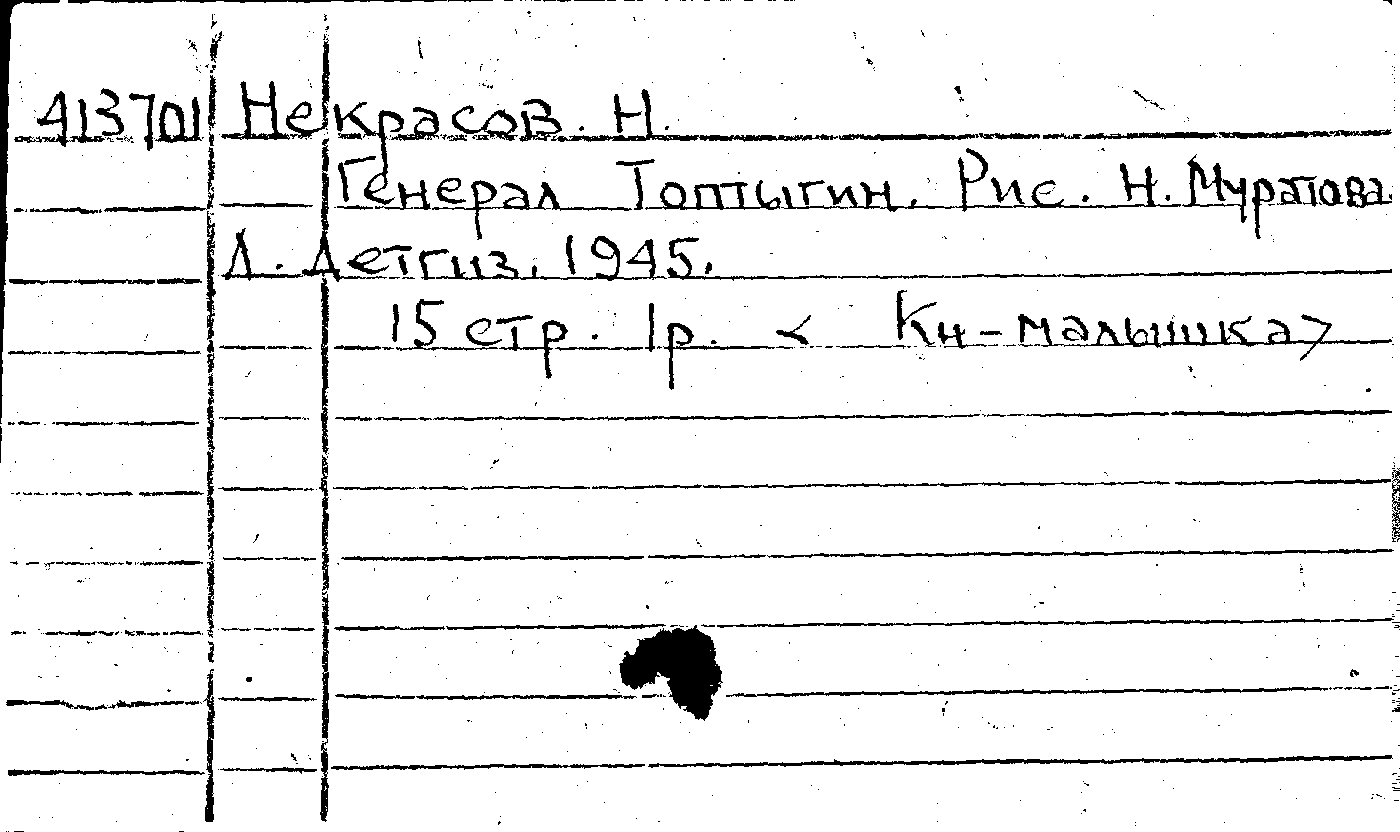 413701 Некрасов. Н.
Генерал Топтыгин. Рис. Н. Муратова.
Л. Детгиз. 1945.
15 стр. 1р. < Кн-малышка>